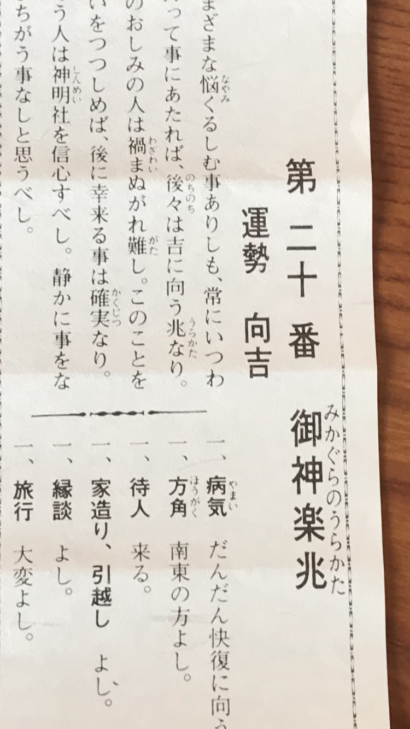 みかぐらのうらかた
第二十番 御神楽兆
運勢 向吉
なやみ
まざまな悩くるしむ事ありしも、常にいつわ
のちのち うらかた
って事にあたれば、後々は吉に向う兆なり。
わざわい がた
のおしみの人は禍まぬがれ難し。このことを
かくじつ
いをつつしめば、後に幸来る事は確実なり。
しんめい
う人は神明社を信心すべし。静かに事をな
ちがう事なしと思うべし。
やまい
一、病気 だんだん快復に向う
ほうがく
一、方角 南東の方よし。
一、待人 来る。
一、家造り、引越し よし。
一、縁談 よし。
一、旅行 大変よし。